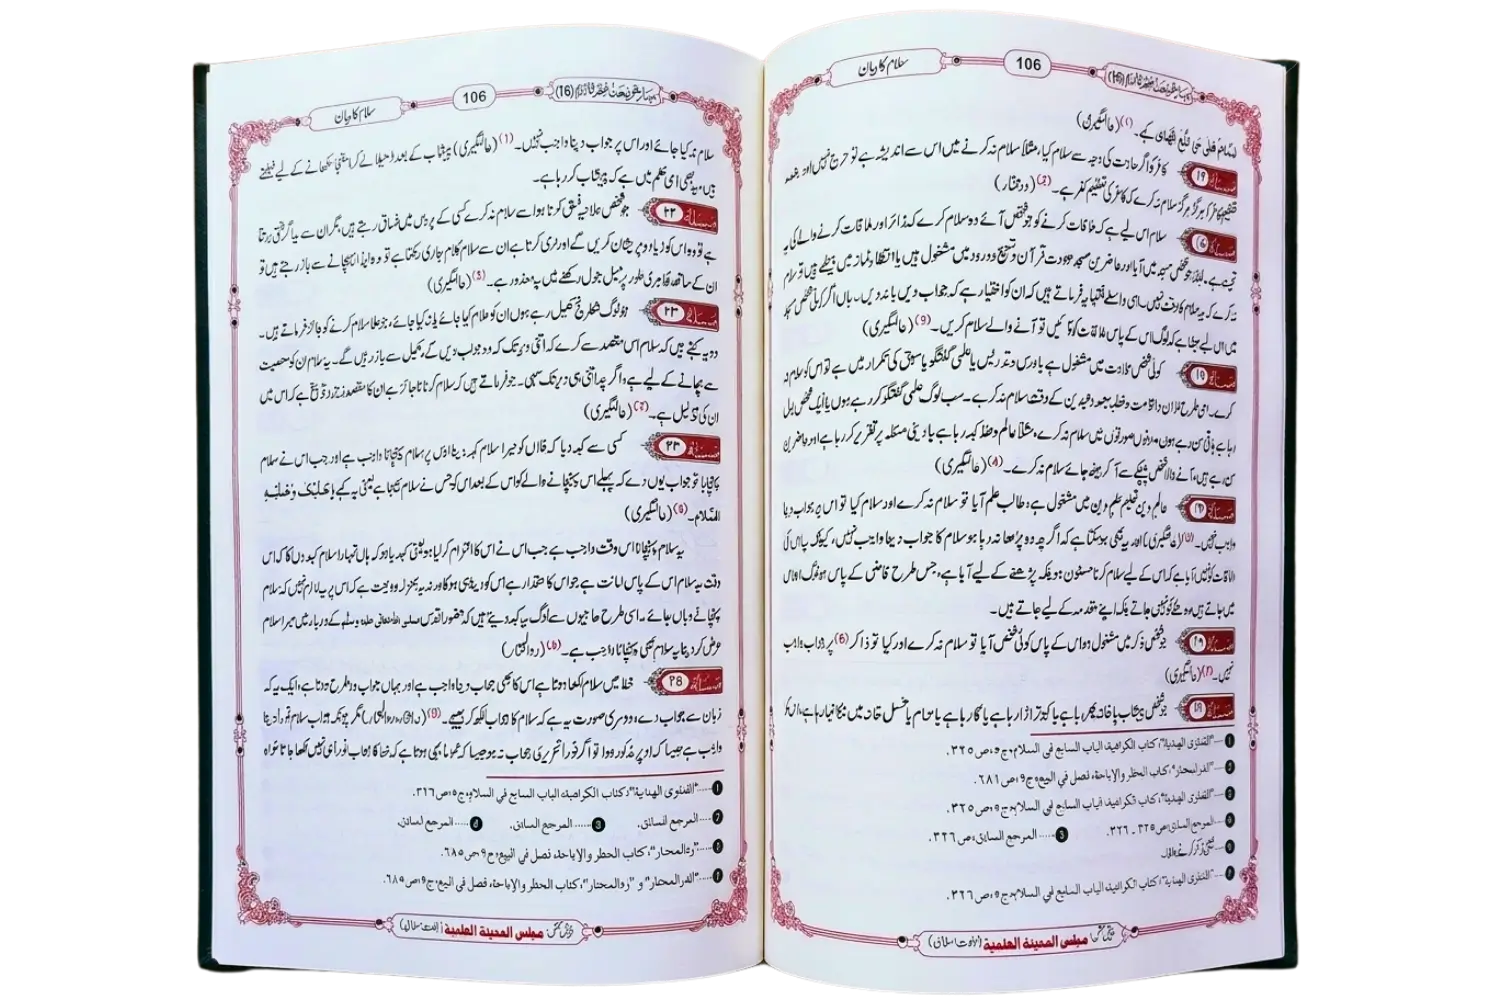 بہارِ شریعت حصہ شانزدہم (16)
106
سلام کا بیان
(عالمگیری)
مسئلہ ۱۹ کافر کو اگر حاجت کی وجہ سے سلام کیا، مثلاً سلام نہ کرنے میں اس سے اندیشہ ہے تو حرج نہیں اور بقصد
کافر کو ہرگز ہرگز سلام نہ کرے کہ کافر کی تعظیم کفر ہے۔ (درمختار)
سلام اس لیے ہے کہ ملاقات کرنے کو جو شخص آئے وہ سلام کرے کہ زائر اور ملاقات کرنے والے کی یہ
جو شخص مسجد میں آیا اور حاضرین مسجد تلاوت قرآن و تسبیح و درود میں مشغول ہیں یا انتظار نماز میں بیٹھے ہیں تو سلام
نہ کرے کہ یہ سلام کا وقت نہیں۔ اسی واسطے فقہا یہ فرماتے ہیں کہ ان کو اختیار ہے کہ جواب دیں یا نہ دیں۔ ہاں اگر کوئی شخص
میں اس لیے بیٹھا ہے کہ لوگ اس کے پاس ملاقات کو آئیں تو آنے والے سلام کریں۔ (9) (عالمگیری)
کوئی شخص تلاوت میں مشغول ہے یا درس و تدریس یا علمی گفتگو یا سبق کی تکرار میں ہے تو اس کو سلام نہ
کرے۔ اسی طرح اذان و اقامت و خطبہ جمعہ و عیدین کے وقت سلام نہ کرے۔ سب لوگ علمی گفتگو کر رہے ہوں یا ایک شخص بول
رہا ہے باقی سن رہے ہوں دونوں صورتوں میں سلام نہ کرے، مثلاً عالم وعظ کہہ رہا ہے یا دینی مسئلہ پر تقریر کر رہا ہے اور حاضرین
سن رہے ہیں، آنے والا شخص چپکے سے آ کر بیٹھ جائے سلام نہ کرے۔ (عالمگیری)
عالمِ دین تعلیمِ علمِ دین میں مشغول ہے، طالب علم آیا تو سلام نہ کرے اور سلام کیا تو اس پر جواب دینا
واجب نہیں۔ (عالمگیری) اور یہ بھی ہو سکتا ہے کہ اگرچہ وہ پڑھا نہ رہا ہو سلام کا جواب دینا واجب نہیں، کیونکہ یہ اس کی
ملاقات کو نہیں آیا ہے کہ اس کے لیے سلام کرنا مسنون ہو بلکہ پڑھنے کے لیے آیا ہے، جس طرح قاضی کے پاس جو لوگ اجلاس
میں جاتے ہیں وہ ملنے کو نہیں جاتے بلکہ اپنے مقدمہ کے لیے جاتے ہیں۔
جو شخص ذکر میں مشغول ہو اس کے پاس کوئی شخص آیا تو سلام نہ کرے اور کیا تو ذاکر (6) پر جواب واجب
نہیں۔ (عالمگیری)
جو شخص پیشاب پاخانہ پھر رہا ہے یا کبوتر اڑا رہا ہے یا گا رہا ہے یا حمام یا غسل خانہ میں ننگا نہا رہا ہے،
"الفتاوی الهندیة"، کتاب الکراهیة، الباب السابع في السلام، ج۵، ص۳۲۵.
"الدرالمختار"، کتاب الحظر والإباحة، فصل في البیع، ج۹، ص۶۸۱.
"الفتاوی الهندیة"، کتاب الکراهیة، الباب السابع في السلام، ج۵، ص۳۲۵.
المرجع السابق، ص۳۲۵ - ۳۲۶. المرجع السابق، ص۳۲۶.
"الفتاوی الهندیة"، کتاب الکراهیة، الباب السابع في السلام، ج۵، ص۳۲۶.
مجلس المدینة العلمیة
بہارِ شریعت حصہ شانزدہم (16)
106
سلام کا بیان
سلام نہ کیا جائے اور اس پر جواب دینا واجب نہیں۔ (1) (عالمگیری) پیشاب کے بعد ڈھیلا لے کر استنجا سکھانے کے لیے ٹہلتے
ہیں یہ بھی اسی حکم میں ہے کہ پیشاب کر رہا ہے۔
مسئلہ ۲۲ جو شخص علانیہ فسق کرتا ہو اسے سلام نہ کرے کسی کے پڑوس میں فساق رہتے ہیں، مگر ان سے یہ اگر سختی برتتا
ہے تو وہ اس کو زیادہ پریشان کریں گے اور نرمی کرتا ہے ان سے سلام کلام جاری رکھتا ہے تو وہ ایذا پہنچانے سے باز رہتے ہیں تو
ان کے ساتھ ظاہری طور پر میل جول رکھنے میں یہ معذور ہے۔ (عالمگیری)
مسئلہ ۲۳ جو لوگ شطرنج کھیل رہے ہوں ان کو سلام کیا جائے یا نہ کیا جائے، جو علما سلام کرنے کو جائز فرماتے ہیں۔
وہ یہ کہتے ہیں کہ سلام اس مقصد سے کرے کہ اتنی دیر تک کہ وہ جواب دیں گے، کھیل سے باز رہیں گے۔ یہ سلام ان کو معصیت
سے بچانے کے لیے ہے اگرچہ اتنی ہی دیر تک سہی۔ جو فرماتے ہیں کہ سلام کرنا ناجائز ہے ان کا مقصد زجر و توبیخ ہے کہ اس میں
ان کی تذلیل ہے۔ (عالمگیری)
مسئلہ ۲۴ کسی سے کہہ دیا کہ فلاں کو میرا سلام کہہ دینا اوس پر سلام پہنچانا واجب ہے اور جب اس نے سلام
پہنچایا تو جواب یوں دے کہ پہلے اس پہنچانے والے کو اس کے بعد اس کو جس نے سلام بھیجا ہے یعنی یہ کہے
السَّلام۔ (عالمگیری)
یہ سلام پہنچانا اس وقت واجب ہے جب اس نے اس کا التزام کر لیا ہو یعنی کہہ دیا ہو کہ ہاں تمہارا سلام کہہ دوں گا کہ اس
وقت یہ سلام اس کے پاس امانت ہے جو اس کا حقدار ہے اس کو دینا ہی ہوگا ورنہ یہ بمنزلہ ودیعت ہے کہ اس پر یہ لازم نہیں کہ سلام
پہنچانے وہاں جائے۔ اسی طرح حاجیوں سے لوگ یہ کہہ دیتے ہیں کہ حضور اقدس صلی اللہ تعالی علیہ وسلم کے دربار میں میرا سلام
عرض کر دینا یہ سلام بھی پہنچانا واجب ہے۔ (ردالمحتار)
مسئلہ خط میں سلام لکھا ہوتا ہے اس کا بھی جواب دینا واجب ہے اور یہاں جواب دو طرح ہوتا ہے، ایک یہ کہ
زبان سے جواب دے، دوسری صورت یہ ہے کہ سلام کا جواب لکھ کر بھیجے۔ مگر چونکہ جواب سلام فوراً دینا
واجب ہے جیسا کہ اوپر مذکور ہوا تو اگر فوراً تحریری جواب نہ ہو جیسا کہ عموماً یہی ہوتا ہے کہ خط کا جواب فوراً ہی نہیں لکھا جاتا خواہ
"الفتاوی الهندیة"، کتاب الکراهیة، الباب السابع في السلام، ج۵، ص۳۲۶.
المرجع السابق. المرجع السابق. المرجع السابق.
"ردالمحتار"، کتاب الحظر والإباحة، فصل في البیع، ج۹، ص۶۸۵.
"الدرالمختار" و "ردالمحتار"، کتاب الحظر والإباحة، فصل في البیع، ج۹، ص۶۸۵.
مجلس المدینة العلمیة